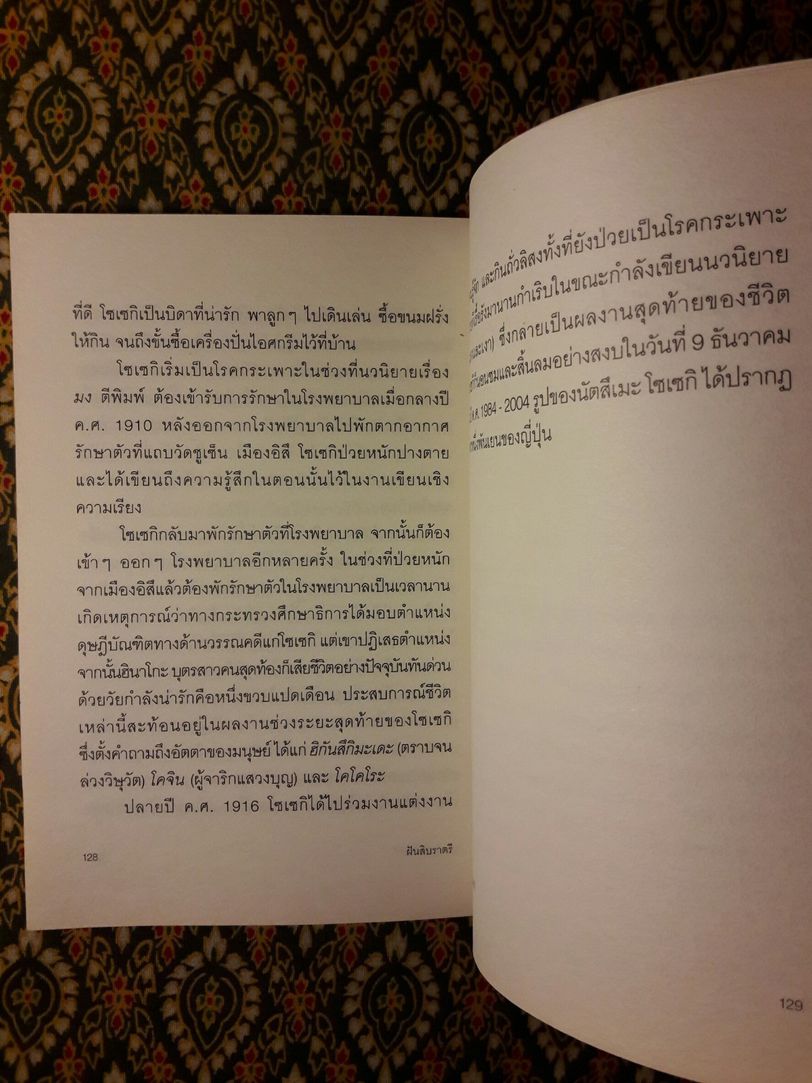 ที่ดี โซเซกิเป็นบิดาที่น่ารัก พาลูกๆ ไปเดินเล่น ซื้อขนมฝรั่ง
ให้กิน จนถึงขั้นซื้อเครื่องปั่นไอศกรีมไว้ที่บ้าน
โซเซกิเริ่มเป็นโรคกระเพาะในช่วงที่นวนิยายเรื่อง
มง ตีพิมพ์ ต้องเข้ารับการรักษาในโรงพยาบาลเมื่อกลางปี
ค.ศ. 1910 หลังออกจากโรงพยาบาลไปพักตากอากาศ
รักษาตัวที่แถบวัดชูเซ็น เมืองอิสึ โซเซกิป่วยหนักปางตาย
และได้เขียนถึงความรู้สึกในตอนนั้นไว้ในงานเขียนเชิง
ความเรียง
โซเซกิกลับมาพักรักษาตัวที่โรงพยาบาล จากนั้นก็ต้อง
เข้าๆ ออกๆ โรงพยาบาลอีกหลายครั้ง ในช่วงที่ป่วยหนัก
จากเมืองอิสึแล้วต้องพักรักษาตัวในโรงพยาบาลเป็นเวลานาน
เกิดเหตุการณ์ว่าทางกระทรวงศึกษาธิการได้มอบตำแหน่ง
ดุษฎีบัณฑิตทางด้านวรรณคดีแก่โซเซกิ แต่เขาปฏิเสธตำแหน่ง
จากนั้นฮินาโกะ บุตรสาวคนสุดท้องก็เสียชีวิตอย่างปัจจุบันทันด่วน
ด้วยวัยกำลังน่ารักคือหนึ่งขวบแปดเดือน ประสบการณ์ชีวิต
เหล่านี้สะท้อนอยู่ในผลงานช่วงระยะสุดท้ายของโซเซกิ
ซึ่งตั้งคำถามถึงอัตตาของมนุษย์ ได้แก่ ฮิกันสึกิมะเดะ (ตราบจน
ล่วงวิษุวัต) โคจิน (ผู้จาริกแสวงบุญ) และ โคโคโระ
ปลายปี ค.ศ. 1916 โซเซกิได้ไปร่วมงานแต่งงาน
128
ฝันสิบราตรี
และกินถั่วลิสงทั้งที่ยังป่วยเป็นโรคกระเพาะ
กำเริบในขณะกำลังเขียนนวนิยาย
ซึ่งกลายเป็นผลงานสุดท้ายของชีวิต
และสิ้นลมอย่างสงบในวันที่ 9 ธันวาคม
ค.ศ. 1984 - 2004 รูปของนัตสึเมะ โซเซกิ ได้ปรากฏ
พันเยนของญี่ปุ่น
129